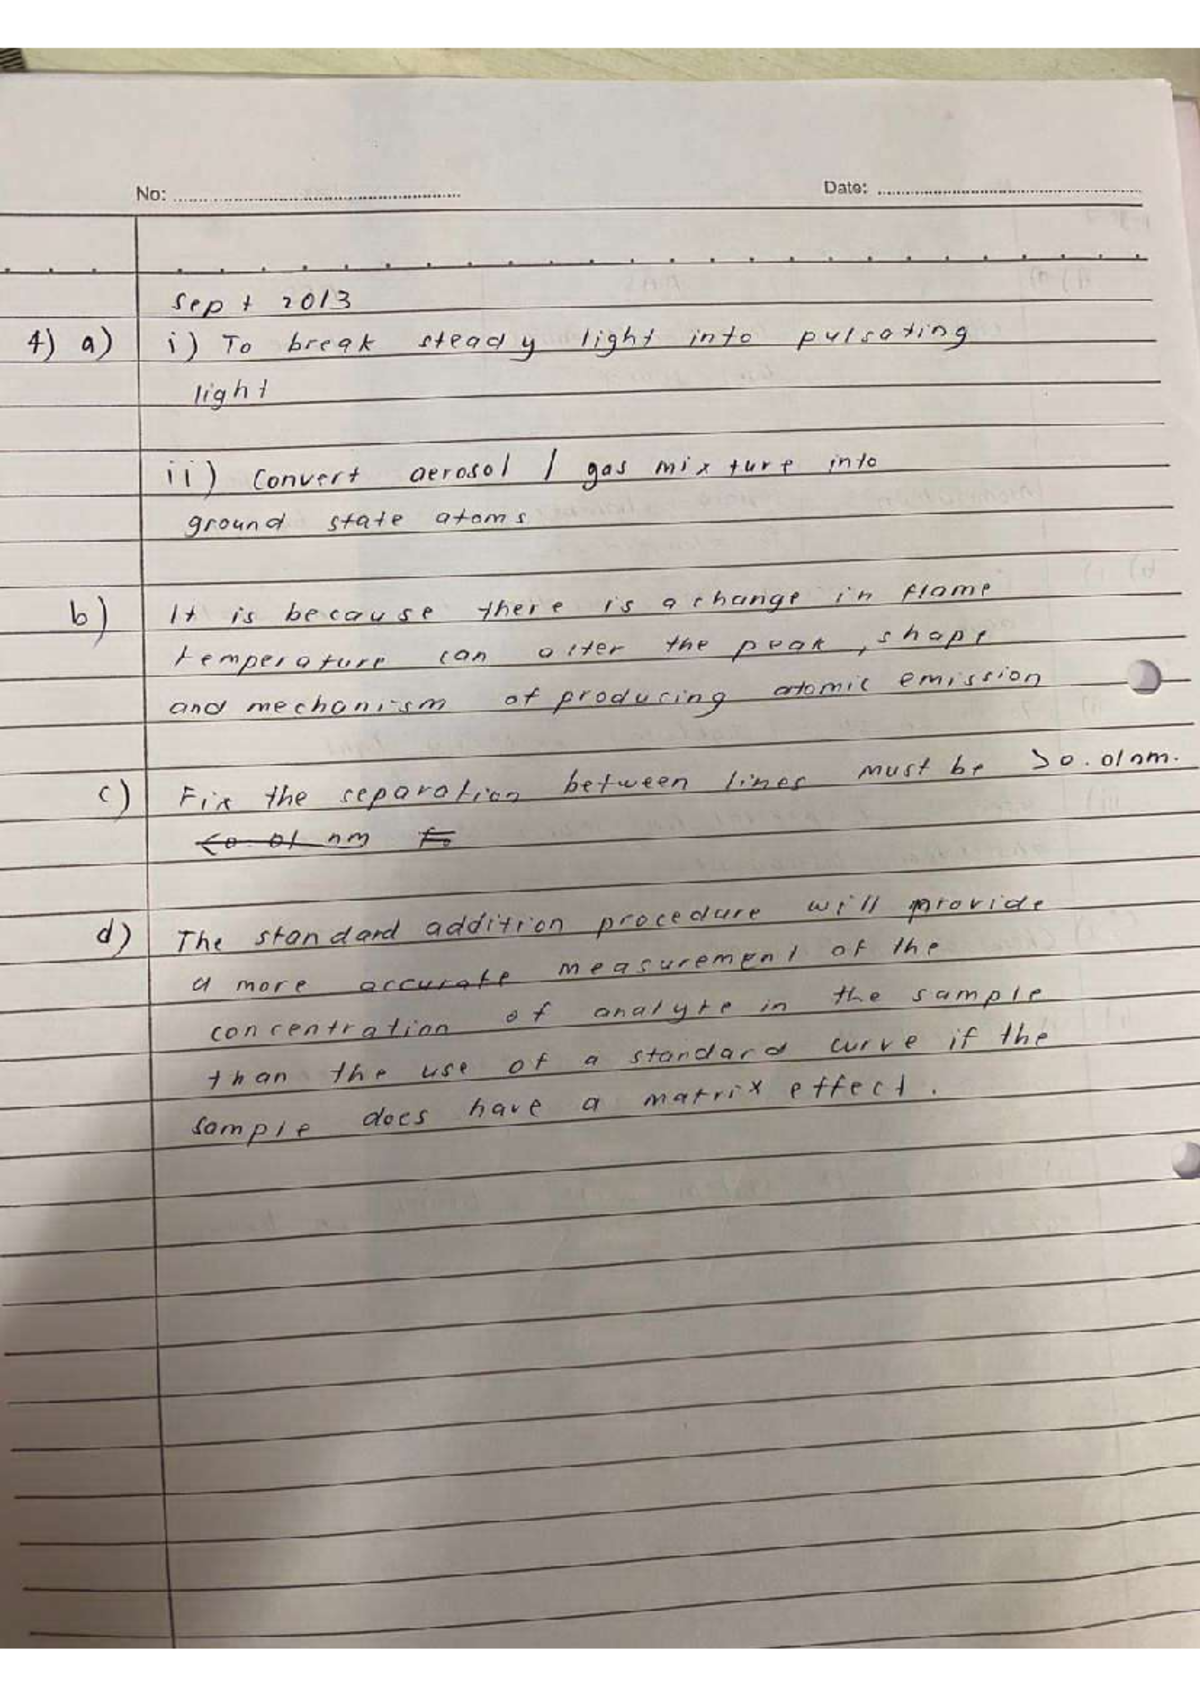 No:
Date:
Sept 2013
4) a) i) To break steady light into pulsating
light
ii) Convert aerosol / gas mixture into
ground state atoms
b) It is because there is a change in flame
temperature can alter the peak, shape
and mechanism of producing atomic emission
c) Fix the separation between lines must be >0.01nm.
<0.01 nm
d) The standard addition procedure will provide
a more accurate measurement of the
concentration of analyte in the sample
than the use of a standard curve if the
sample does have a matrix effect.